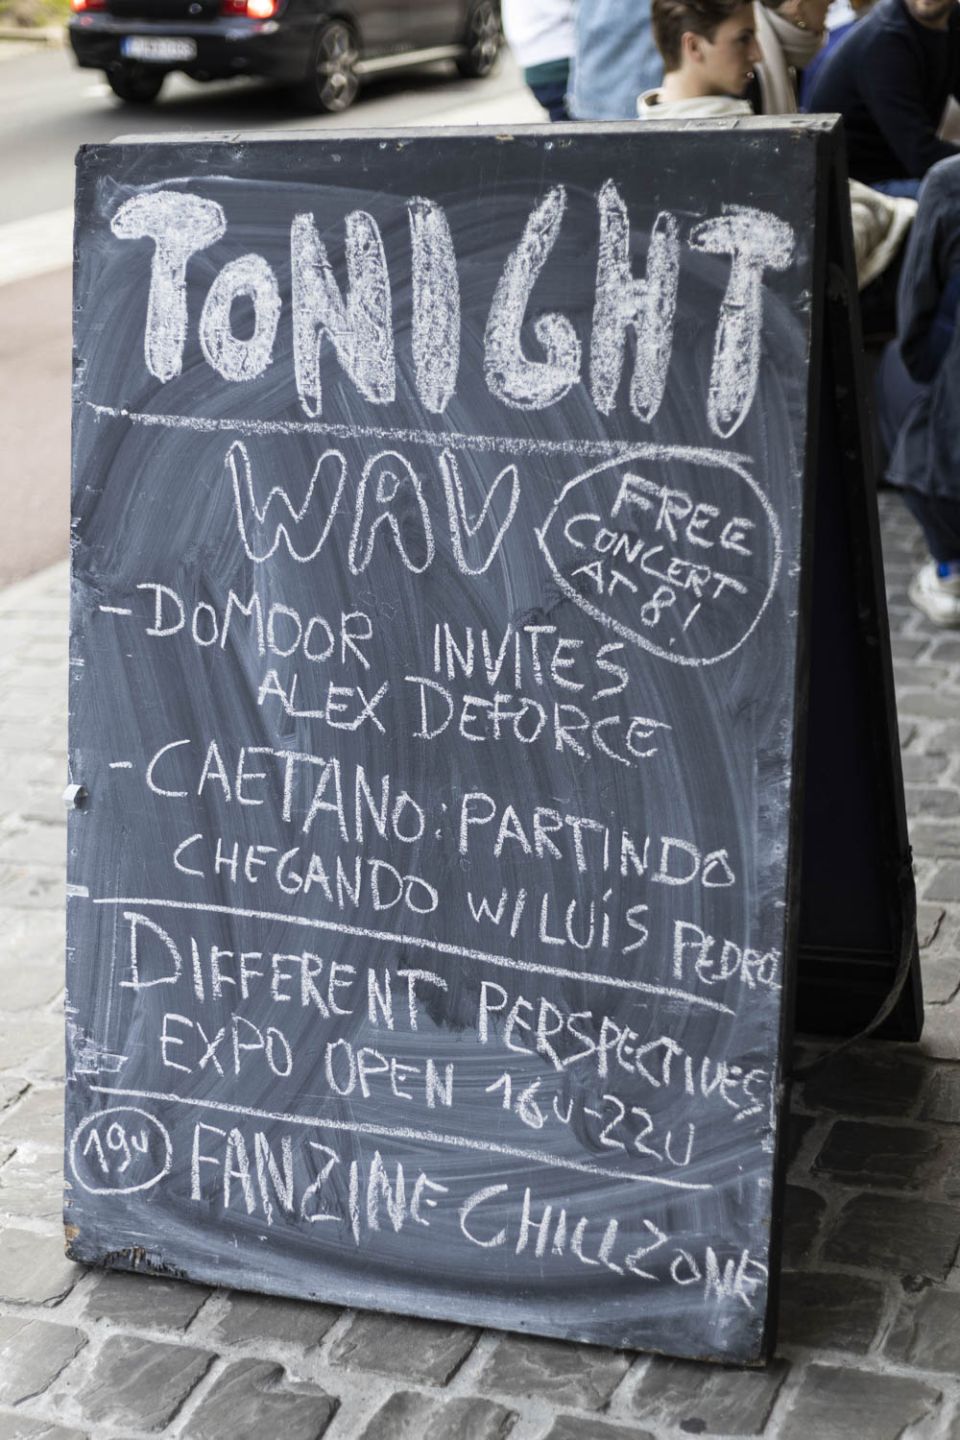 TONIGHT
WAV
FREE
CONCERT
AT 8!
- DOMOOR INVITES
ALEX DEFORCE
- CAETANO: PARTINDO
CHEGANDO W/ LUÍS PEDRO
DIFFERENT PERSPECTIVES
EXPO OPEN 16U-22U
19U FANZINE CHILLZONE